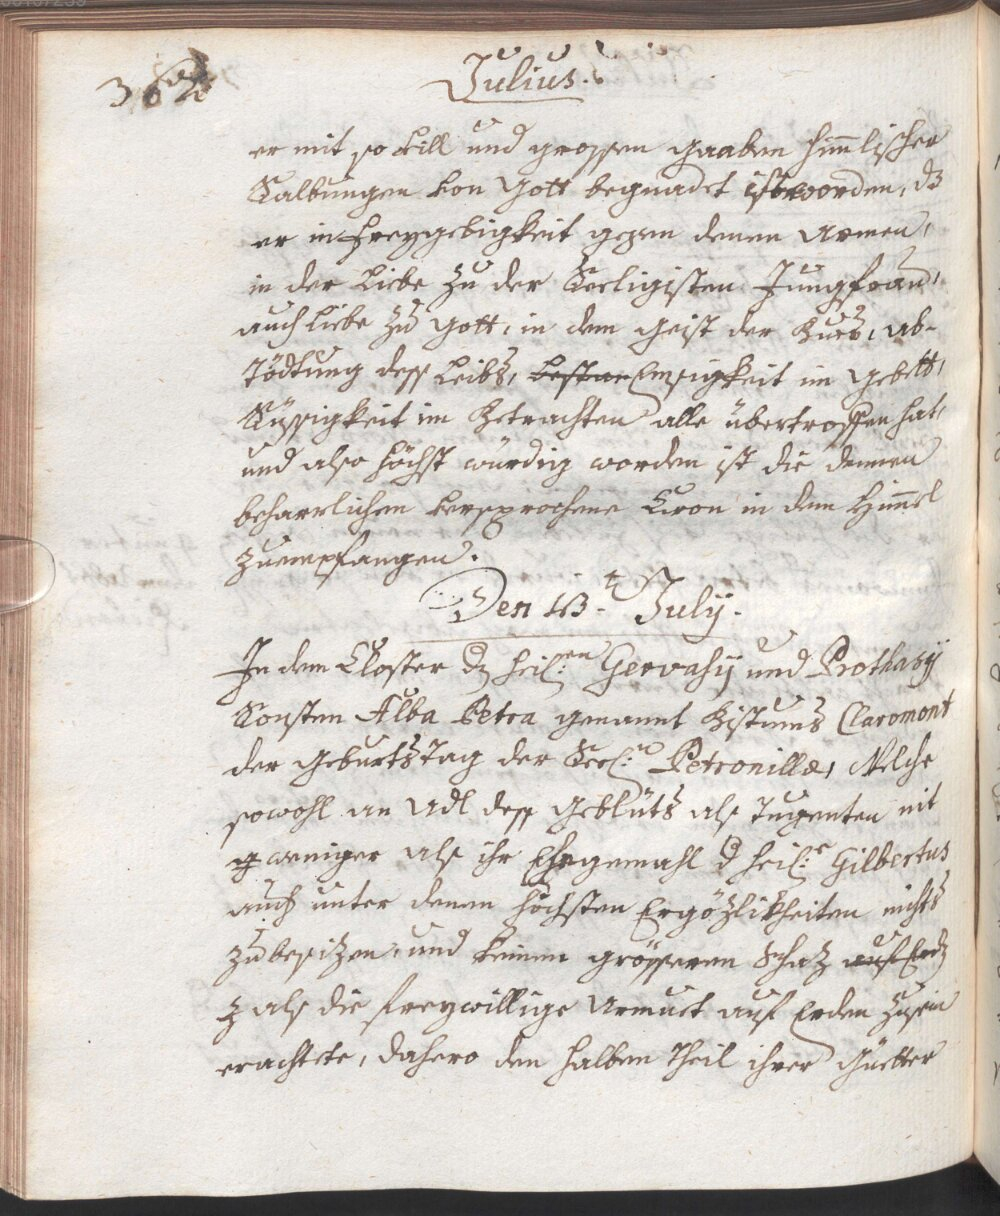 362
Julius.
er mit so vill und grossen gaaben himlischer
Salbungen von Gott begnadet ist worden, dz
er in freygebigkeit gegen denen Armen,
in der Liebe zu der Seeligisten Jungfrau,
auch Liebe zu Gott, in dem Geist der Buess, ab-
tödtung dess Leibs, Emsigkeit im Gebett,
Süssigkeit im Betrachten alle übertroffen hat,
und also höchst würdig worden ist die denen
beharrlichen versprochene Cron in dem Himel
zuempfangen.
Den 13.t July.
In dem Closter dz heil:en Gervasij und Prothasij
Sonsten Alba Petra genannt Bistums Claromont
der GeburtsTag der Seel: Petronillæ, Welche
sowohl an Adl dess geblüts als Tugenten nit
weniger als ihr Ehegemahl d heil:e Gilbertus
auch unter denen höchsten Ergözlikheiten nichts
zubesizen, und keinen grösseren Schaz auf Erd
z als die freywillige Armuet auf Erden zusein
erachtete, dahero den halben Theil ihrer Güetter